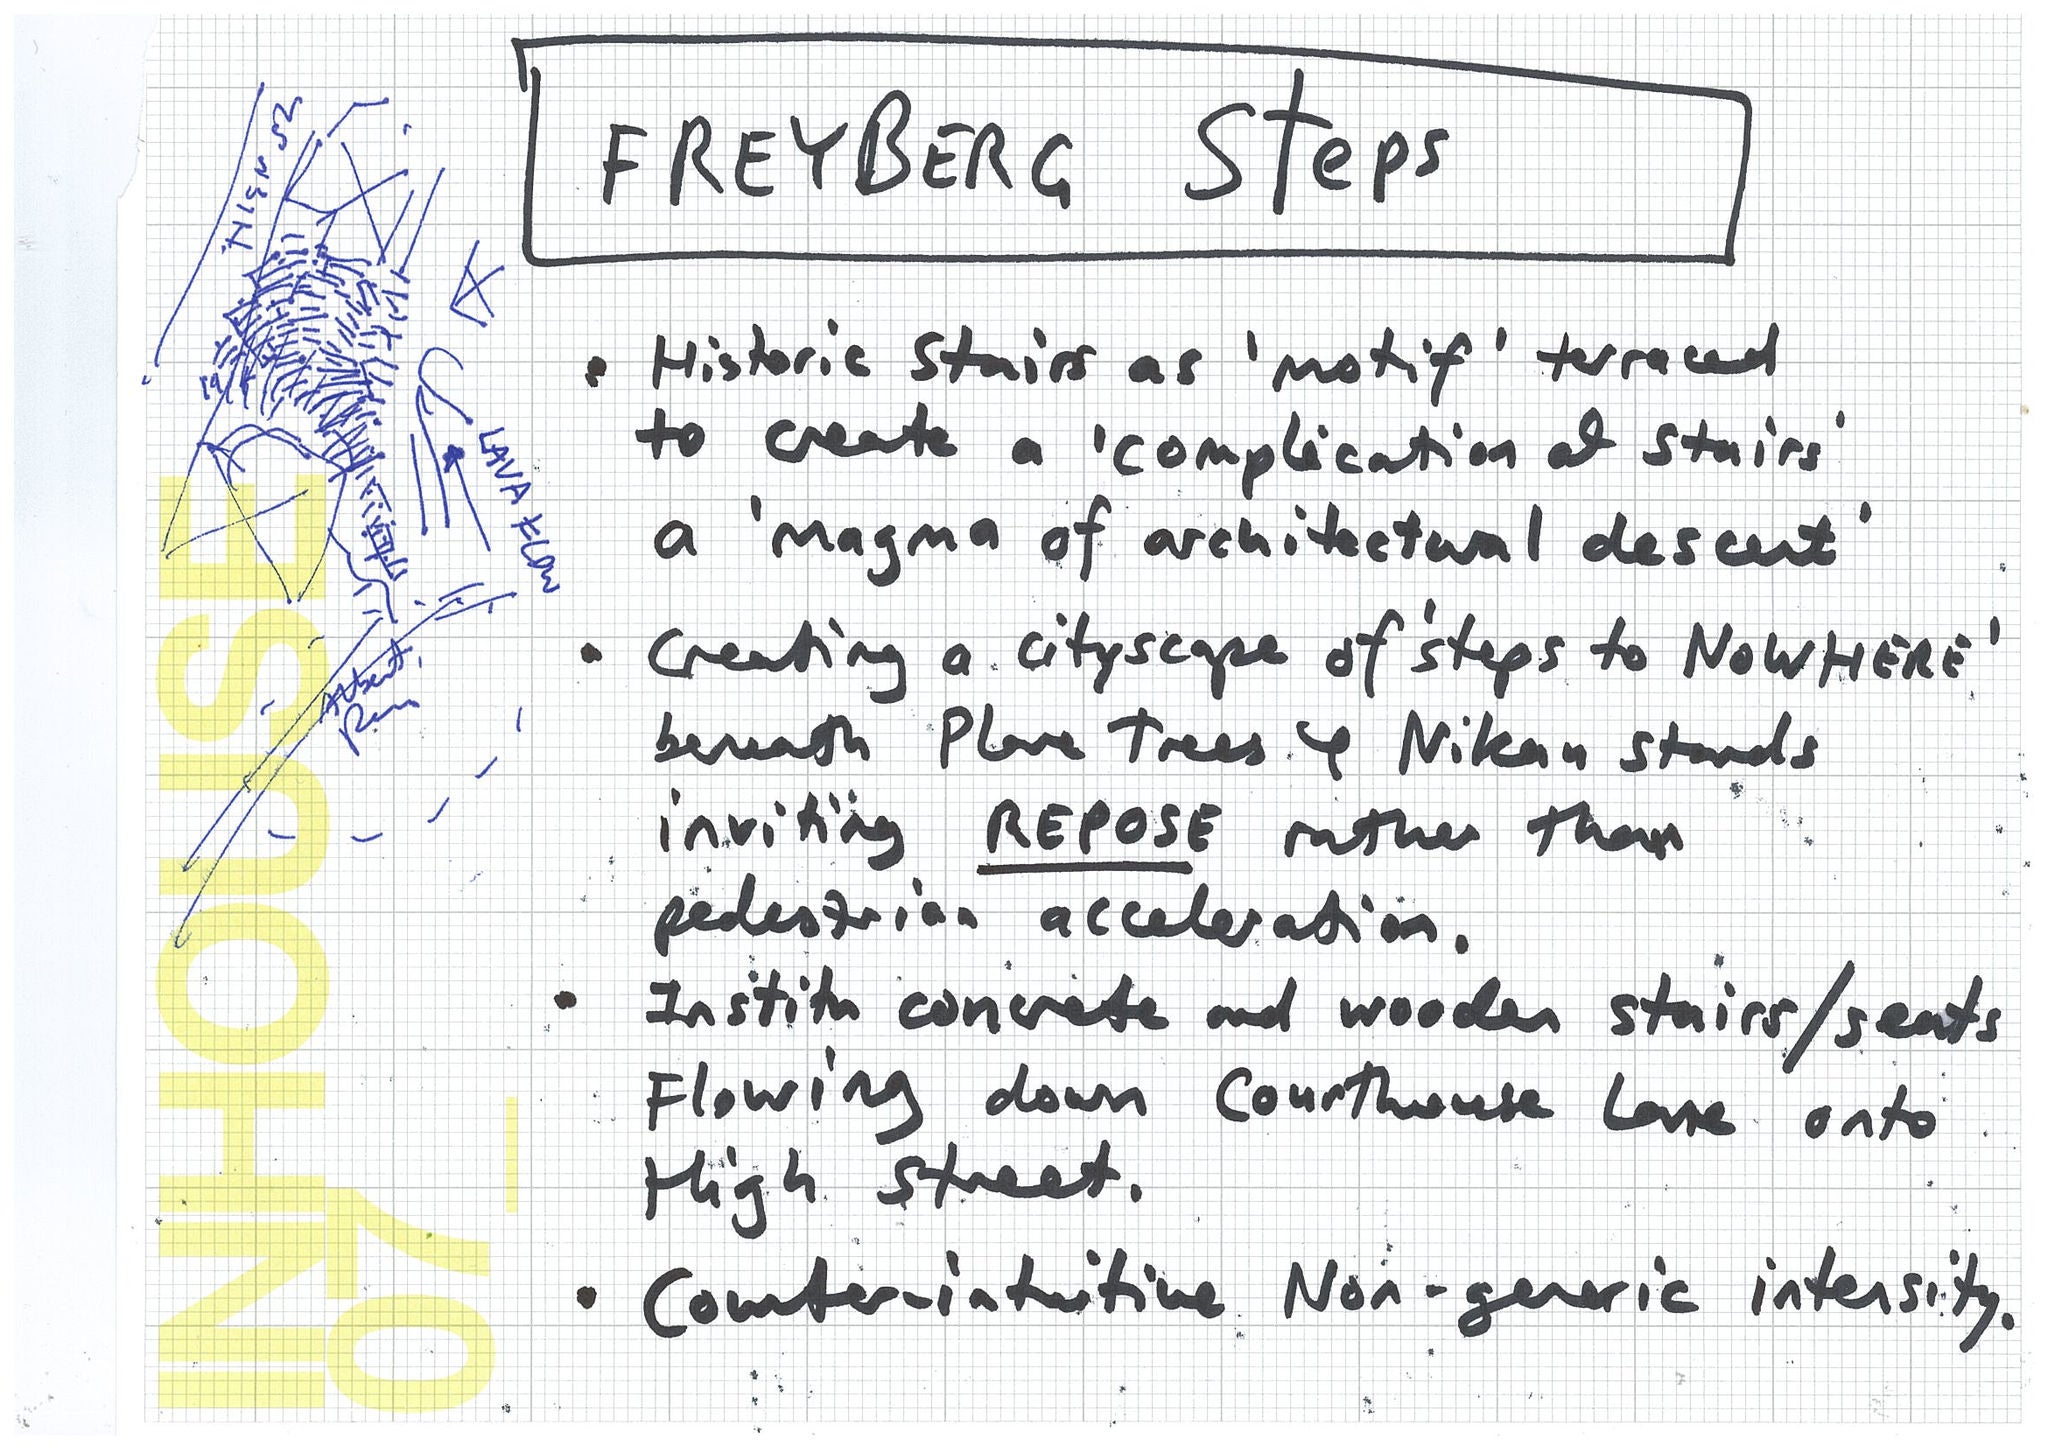 FREYBERG Steps
• Historic Stairs as 'motif' terraced
to create a 'complication of stairs'
a 'magma of architectural descent'
• Creating a cityscape of 'steps to NOWHERE'
beneath Plane Trees & Nikau stands
inviting REPOSE rather than
pedestrian acceleration.
• Institu concrete and wooden stairs/seats
Flowing down Courthouse Lane onto
High Street.
• Counter-intuitive Non-generic intensity.
HIGH St
LAVA FLOW
INHOUSE
07_